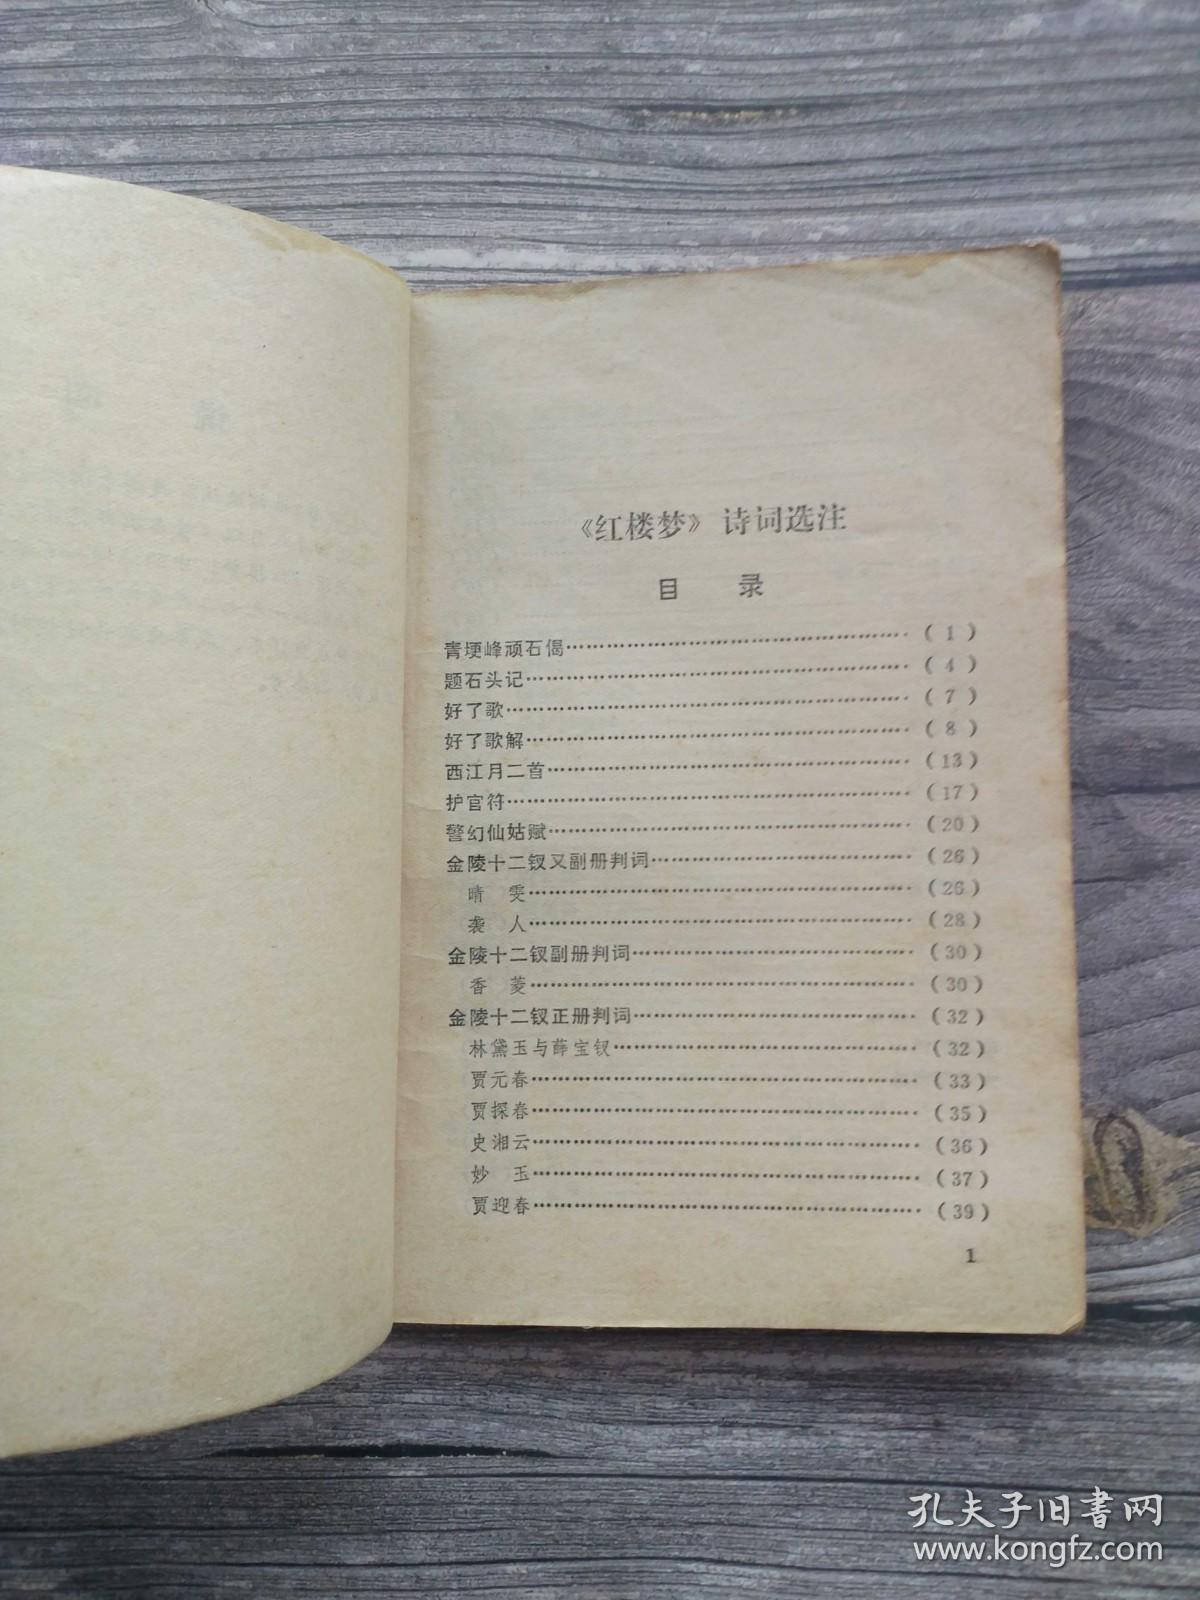 《红楼梦》诗词选注
目 录
青埂峰顽石偈……(1)
题石头记……(4)
好了歌……(7)
好了歌解……(8)
西江月二首……(13)
护官符……(17)
警幻仙姑赋……(20)
金陵十二钗又副册判词……(26)
晴 雯……(26)
袭 人……(28)
金陵十二钗副册判词……(30)
香 菱……(30)
金陵十二钗正册判词……(32)
林黛玉与薛宝钗……(32)
贾元春……(33)
贾探春……(35)
史湘云……(36)
妙 玉……(37)
贾迎春……(39)
1
孔夫子旧书网
www.kongfz.com